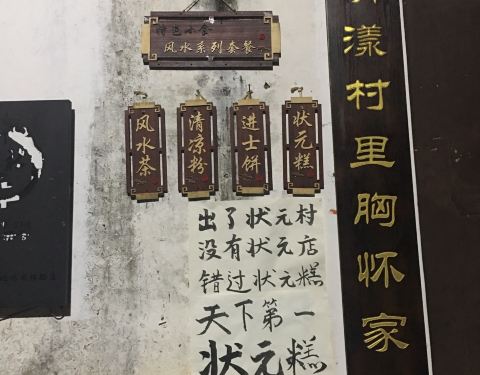 特色小食
风水系列套餐
风水茶
清凉粉
进士饼
状元糕
出了状元村
没有状元店
错过状元糕
天下第一
状元糕
漾村里胸怀家